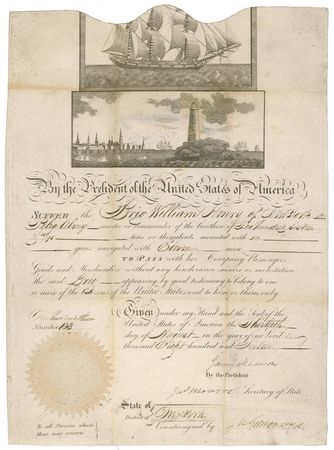 By the President of the United States of America
SUFFER the Brig William Henry of New York
master or commander of the burthen of Two hundred
tons or thereabouts mounted with no
guns navigated with Eleven men
TO PASS with her Company Passengers
Goods and Merchandize without any hinderance seisure or molestation
the said Brig appearing by good testimony to belong to one
or more of the Citizens of the United States and to him or them only
Given under my Hand and the Seal of the
Number
United States of America the
day of August in the year of our Lord one
thousand Eight hundred and
James Madison
By the President
Jas Monroe Secretary of State
State of
District of New York
Countersigned by
To all Persons whom
these may concern